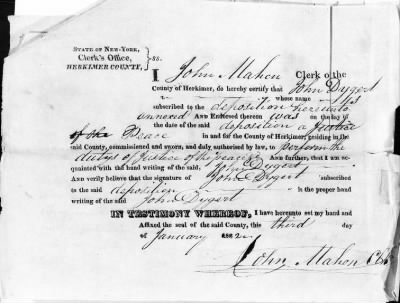 STATE OF NEW-YORK,
Clerk's Office,
HERKIMER COUNTY,
} ss.
I John Mahon Clerk o the
County of Herkimer, do hereby certify that John Dygert
whose name is
subscribed to the deposition hereunto
annexed AND Endorsed thereon was on the day of
the date of the said deposition a Justice
of the Peace in and for the County of Herkimer, residing in the
said County, commissioned and sworn, and duly authorised by law, to perform the
dutys of Justice of the peace And further, that I am ac-
quainted with the hand writing of the said John Dygert
And verily believe that the signature of John Dygert subscribed
to the said deposition is the proper hand
writing of the said John Dygert
IN TESTIMONY WHEREOF, I have hereunto set my hand and
Affixed the seal of the said County, this third day
of January
John Mahon Clk